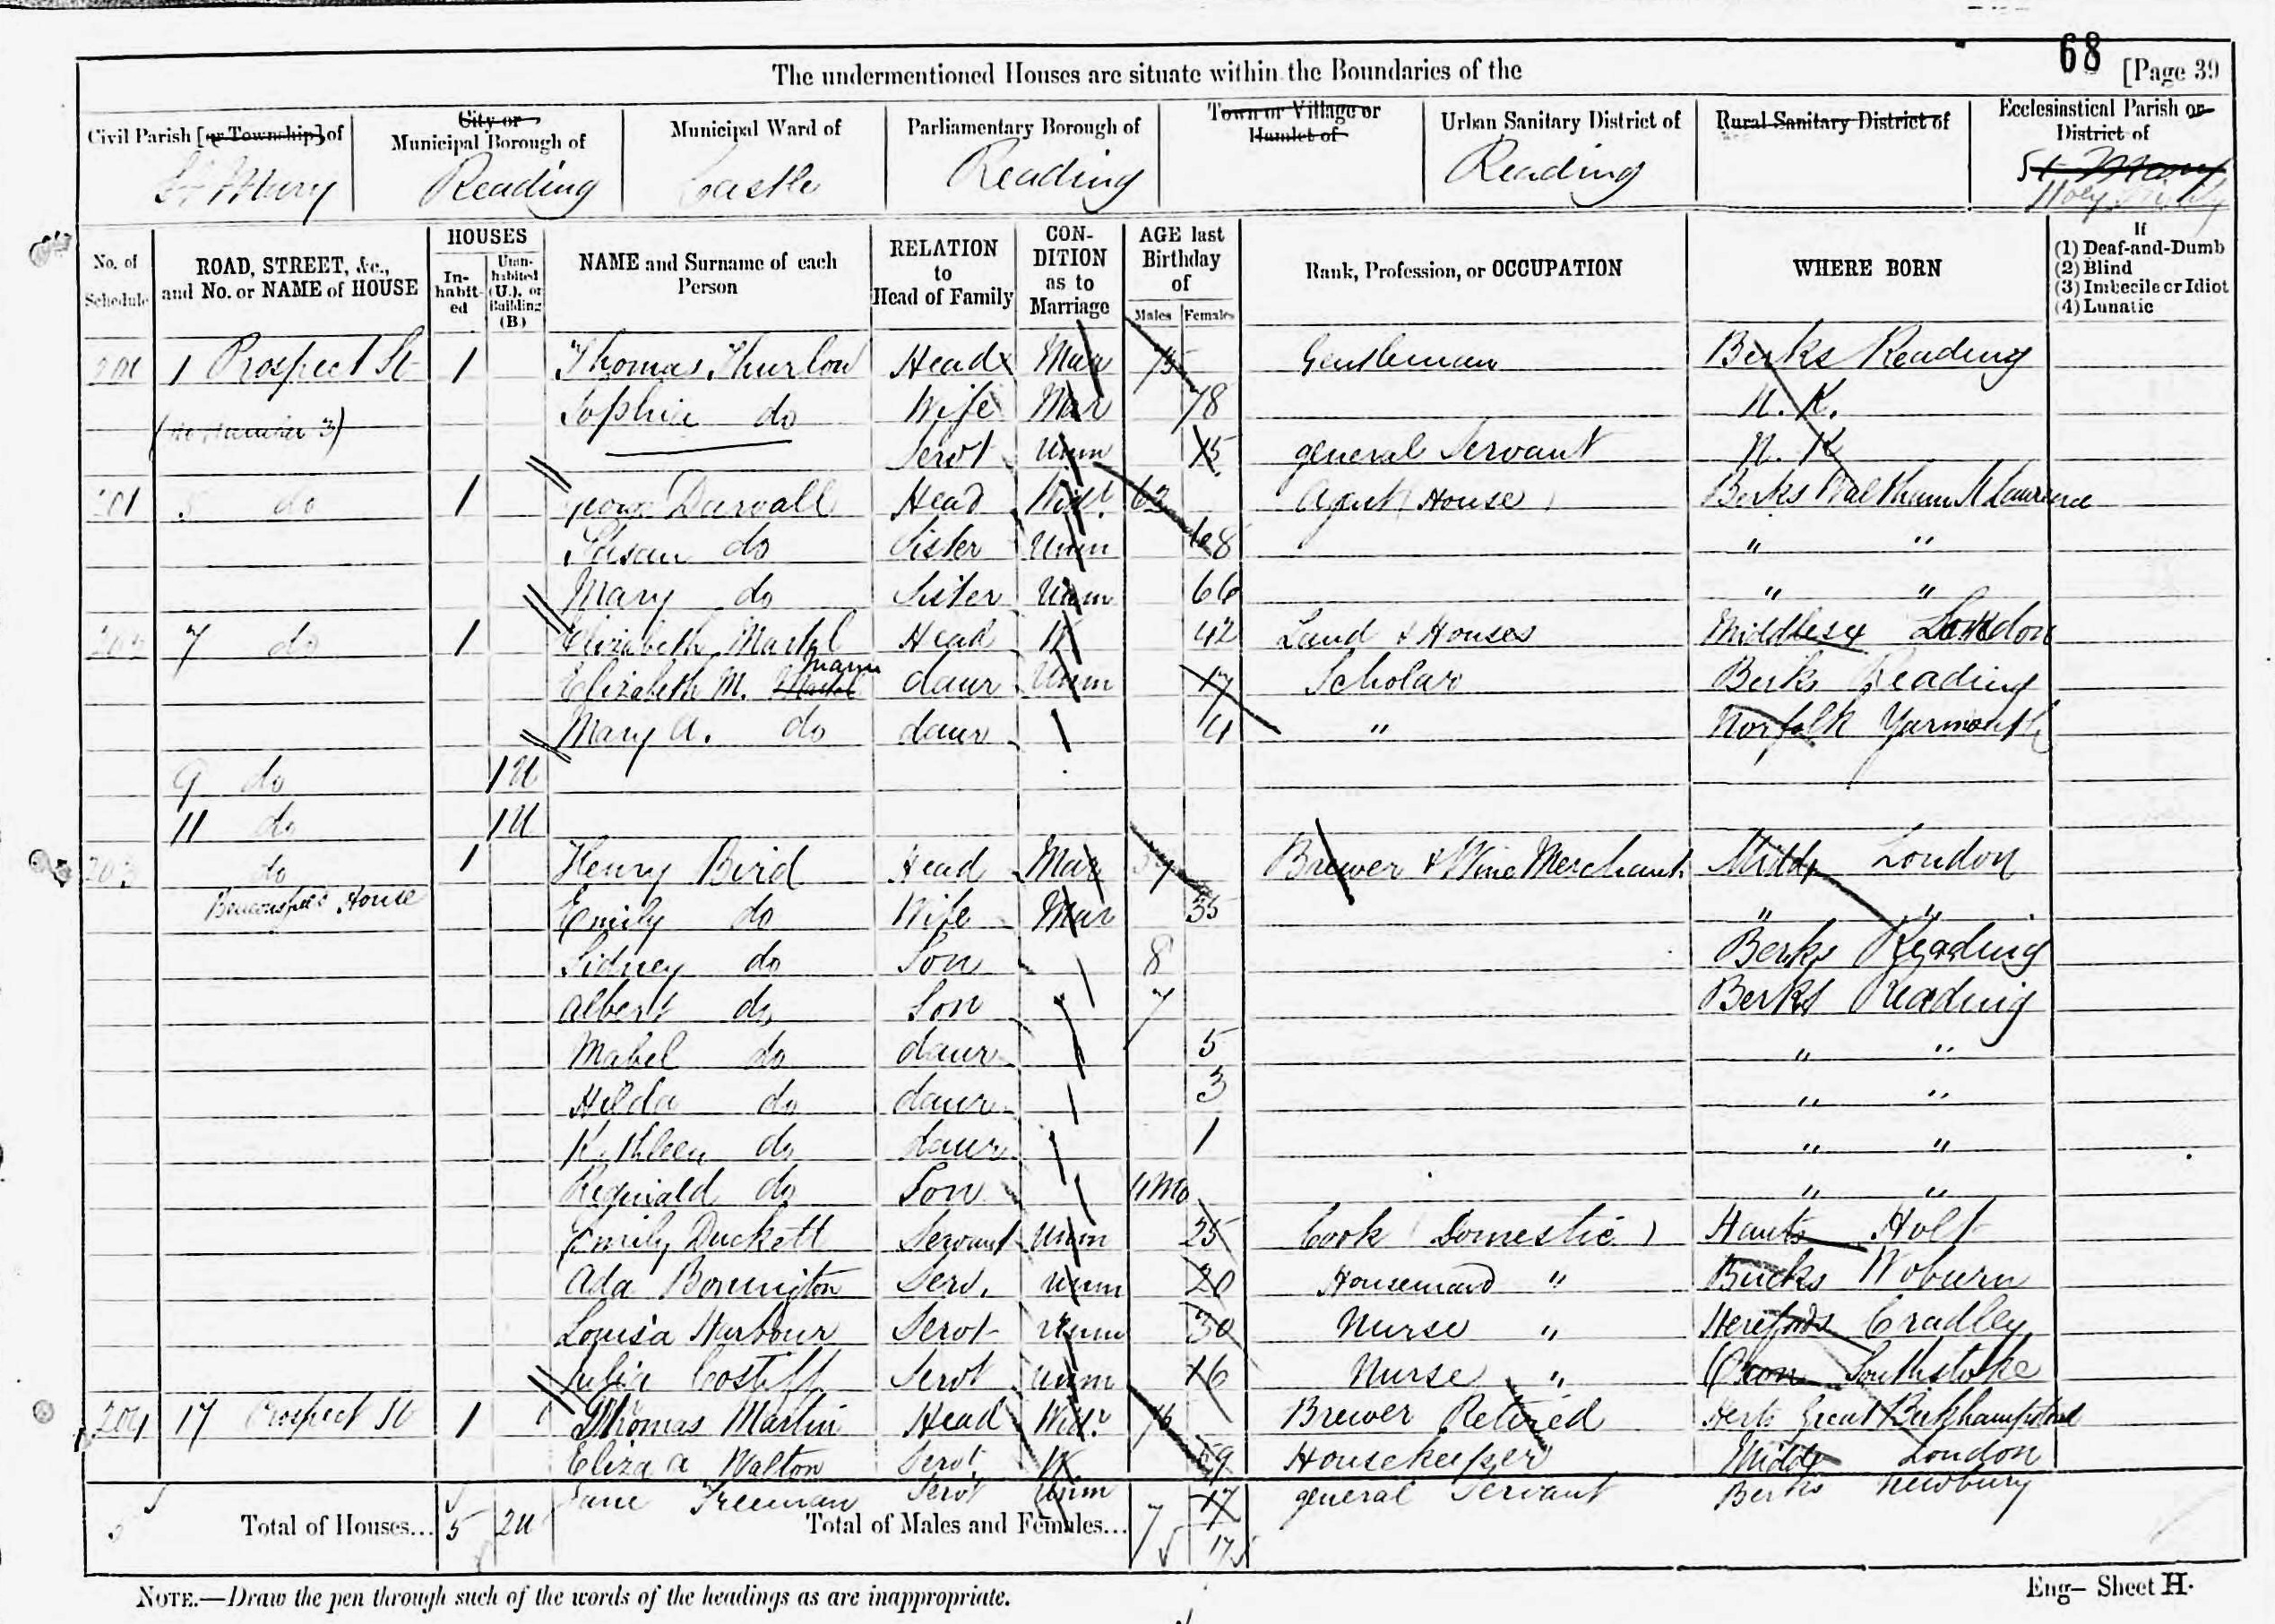 68 [Page 39
The undermentioned Houses are situate within the Boundaries of the
Civil Parish [or Township] of City or Municipal Borough of Municipal Ward of Parliamentary Borough of Town or Village or Hamlet of Urban Sanitary District of Rural Sanitary District of Ecclesiastical Parish or District of
St Mary Reading Castle Reading Reading St Mary
Holy Trinity
No. of Schedule ROAD, STREET, &c., and No. or NAME of HOUSE HOUSES Inhabited Uninhabited (U.), or Building (B) NAME and Surname of each Person RELATION to Head of Family CONDITION as to Marriage AGE last Birthday of Males Females Rank, Profession, or OCCUPATION WHERE BORN If (1) Deaf-and-Dumb (2) Blind (3) Imbecile or Idiot (4) Lunatic
200 1 Prospect St 1 Thomas Thurlow Head Mar 75 Gentleman Berks Reading
Sophia do Wife Mar 78 N. K.
(No Number 3) Servt Unm 15 general Servant N. K
201 5 do 1 Darvall Head Widr 62 Agent (House) Berks Waltham St Laurence
Susan do Sister Unm 68 " "
Mary do Sister Unm 66 " "
202 7 do 1 Elizabeth Head W 42 Land & Houses Middlesex London
Elizabeth M. Mann daur Unm 17 Scholar Berks Reading
Mary A. do daur 4 " Norfolk Yarmouth
9 do 1U
11 do 1U
203 do 1 Henry Bird Head Mar 39 Brewer & Wine Merchant Middx London
House Emily do Wife Mar 35 " "
Sidney do Son 8 Berks Reading
Albert do Son 7 Berks Reading
Mabel do daur 5 " "
Hilda do daur 3 " "
Kathleen do daur 1 " "
Reginald do Son Mo " "
Emily Duckett Servant Unm 25 Cook (Domestic) Hants Holt
Ada Bonnington Serv. Unm 20 Housemaid " Bucks Woburn
Louisa Harbour Servt Unm 30 Nurse " Herefords Cradley
Julia Costiff Servt Unm 16 Nurse " Oxon Southstoke
204 17 Prospect St 1 Thomas Martin Head Widr 76 Brewer Retired Herts Great Berkhampstead
Eliza A Walton Servt W 59 Housekeeper Middx London
Jane Freeman Servt Unm 17 general Servant Berks Newbury
Total of Houses... 5 2U Total of Males and Females... 7 17
NOTE.—Draw the pen through such of the words of the headings as are inappropriate.
Eng— Sheet H.